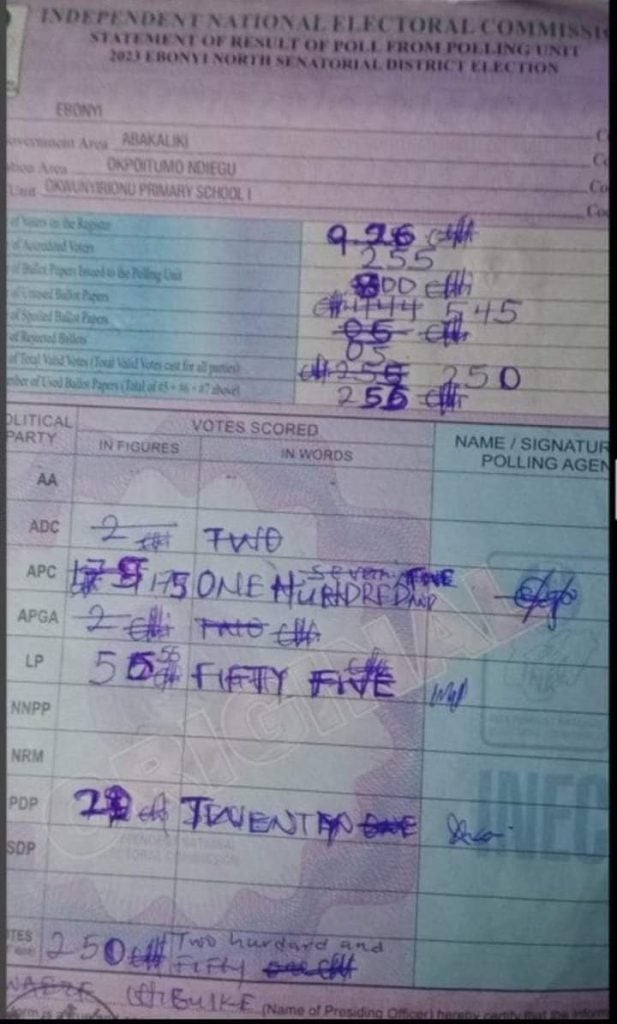 INDEPENDENT NATIONAL ELECTORAL COMMISSI
STATEMENT OF RESULT OF POLL FROM POLLING UNIT
2023 EBONYI NORTH SENATORIAL DISTRICT ELECTION
EBONYI
overnment Area ABAKALIKI
Area OKPOITUMO NDIEGU
Unit OKWUNYIRIONU PRIMARY SCHOOL I
of Voters on the Register 926
of Accredited Voters 255
of Ballot Papers Issued to the Polling Unit 800
of Unused Ballot Papers 545
of Spoiled Ballot Papers
of Rejected Ballots 05
of Total Valid Votes (Total Valid Votes cast for all parties) 250
mber of Used Ballot Papers (Total of #5 + #6 + #7 above) 255
POLITICAL PARTY VOTES SCORED NAME / SIGNATUR
IN FIGURES IN WORDS POLLING AGEN
AA
ADC 2 TWO
APC 175 ONE HUNDRED AND SEVENTY FIVE
APGA 2 TWO
LP 5 FIFTY FIVE
NNPP
NRM
PDP TWENTY ONE
SDP
ORIGINAL
INEC
250 Two hundard and
FIFTY
(Name of Presiding Officer) hereby certify that the inform